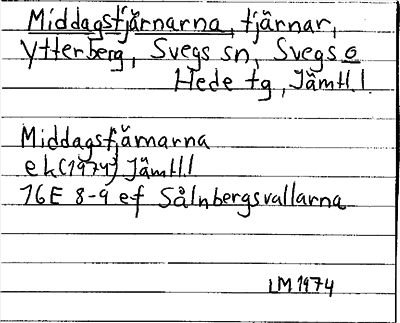 Middagstjärnarna, tjärnar,
Ytterberg, Svegs sn, Svegs o
Hede tg, Jämtl.l.
Middagstjärnarna
ek (1974) Jämtl.l
16E 8-9 ef Sålnbergsvallarna
LM 1974